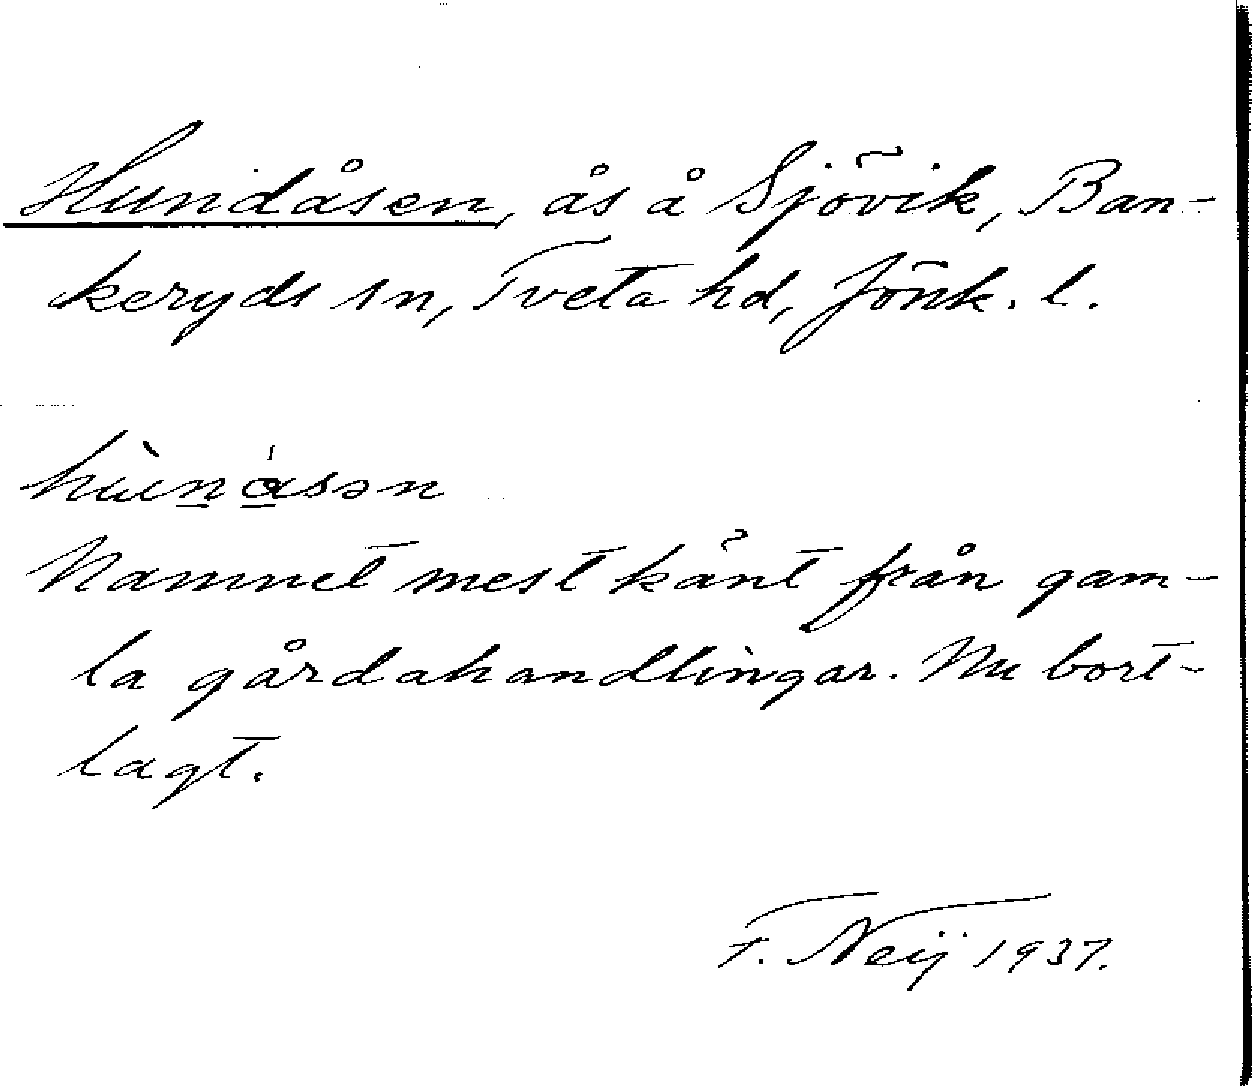 Hundåsen, ås å Sjövik, Ban-
keryds sn, Tveta hd, Jönk. l.
hùnåsən
Namnet mest känt från gam-
la gårdahandlingar. Nu bort-
lagt.
F. Neij 1937.